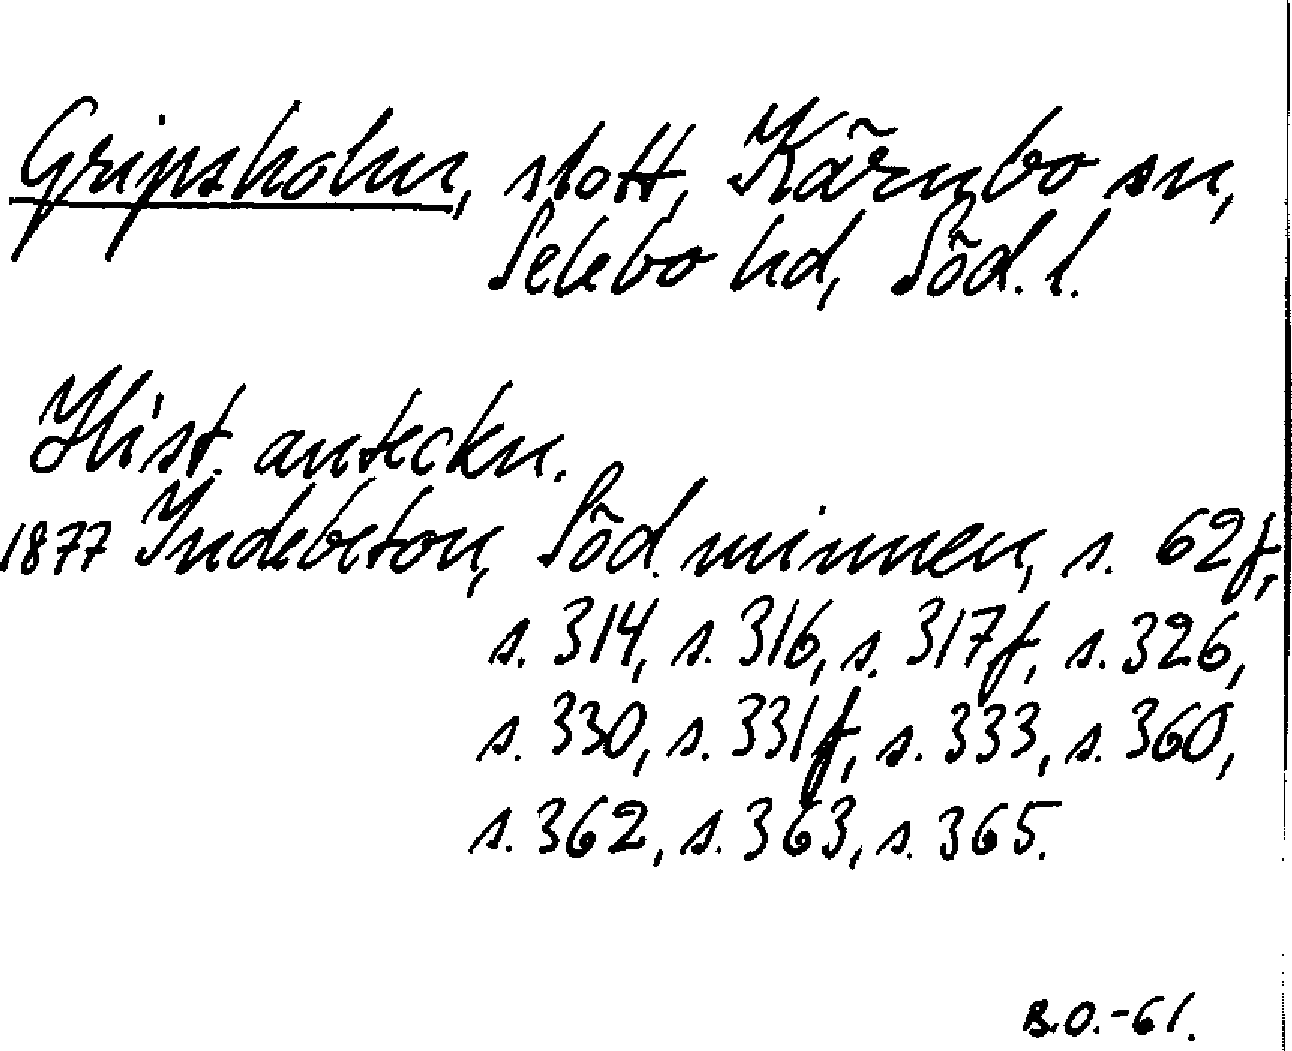 Gripsholm, slott, Kärnbo sn,
Selebo hd, Söd. l.
Hist. anteckn.
1877 Indebetou, Söd. minnen, s. 62f,
s. 314, s. 316, s. 317f, s. 326,
s. 330, s. 331f, s. 333, s. 360,
s. 362, s. 363, s. 365.
B.O.-61.